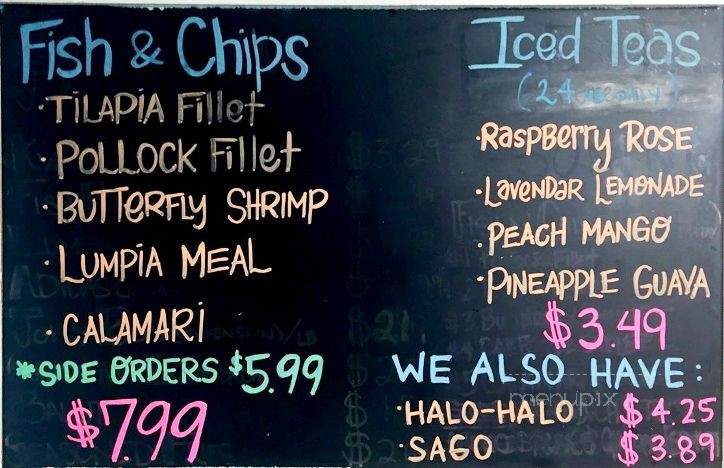 Fish & Chips
·TiLAPiA Fillet
·POLLOCK Fillet
·BUTTeRFLy SHRIMP
·LUMPiA MEAL
·CALAMARi
*SIDE ORDERS $5.99
$7.99
Iced Teas
(24 oz only)
·RaspBerry ROSE
·LavenDar LEMONADE
·PEACH MANGO
·PINEAPPLE GUAVA
$3.49
WE ALSO HAVE:
·HALO-HALO $4.25
·SAGO $3.89
menupix